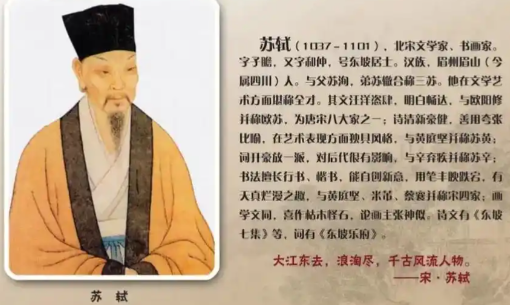 苏轼(1037－1101)，北宋文学家、书画家。
字子瞻，又字和仲，号东坡居士。汉族，眉州眉山(今
属四川)人。与父苏洵，弟苏辙合称三苏。他在文学艺
术方面堪称全才。其文汪洋恣肆，明白畅达，与欧阳修
并称欧苏，为唐宋八大家之一；诗清新豪健，善用夸张
比喻，在艺术表现方面独具风格，与黄庭坚并称苏黄；
词开豪放一派，对后代很有影响，与辛弃疾并称苏辛；
书法擅长行书、楷书，能自创新意，用笔丰腴跌宕，有
天真烂漫之趣，与黄庭坚、米芾、蔡襄并称宋四家；画
学文同，喜作枯木怪石，论画主张神似。诗文有《东坡
七集》等，词有《东坡乐府》。
大江东去，浪淘尽，千古风流人物。
——宋·苏轼
苏 轼